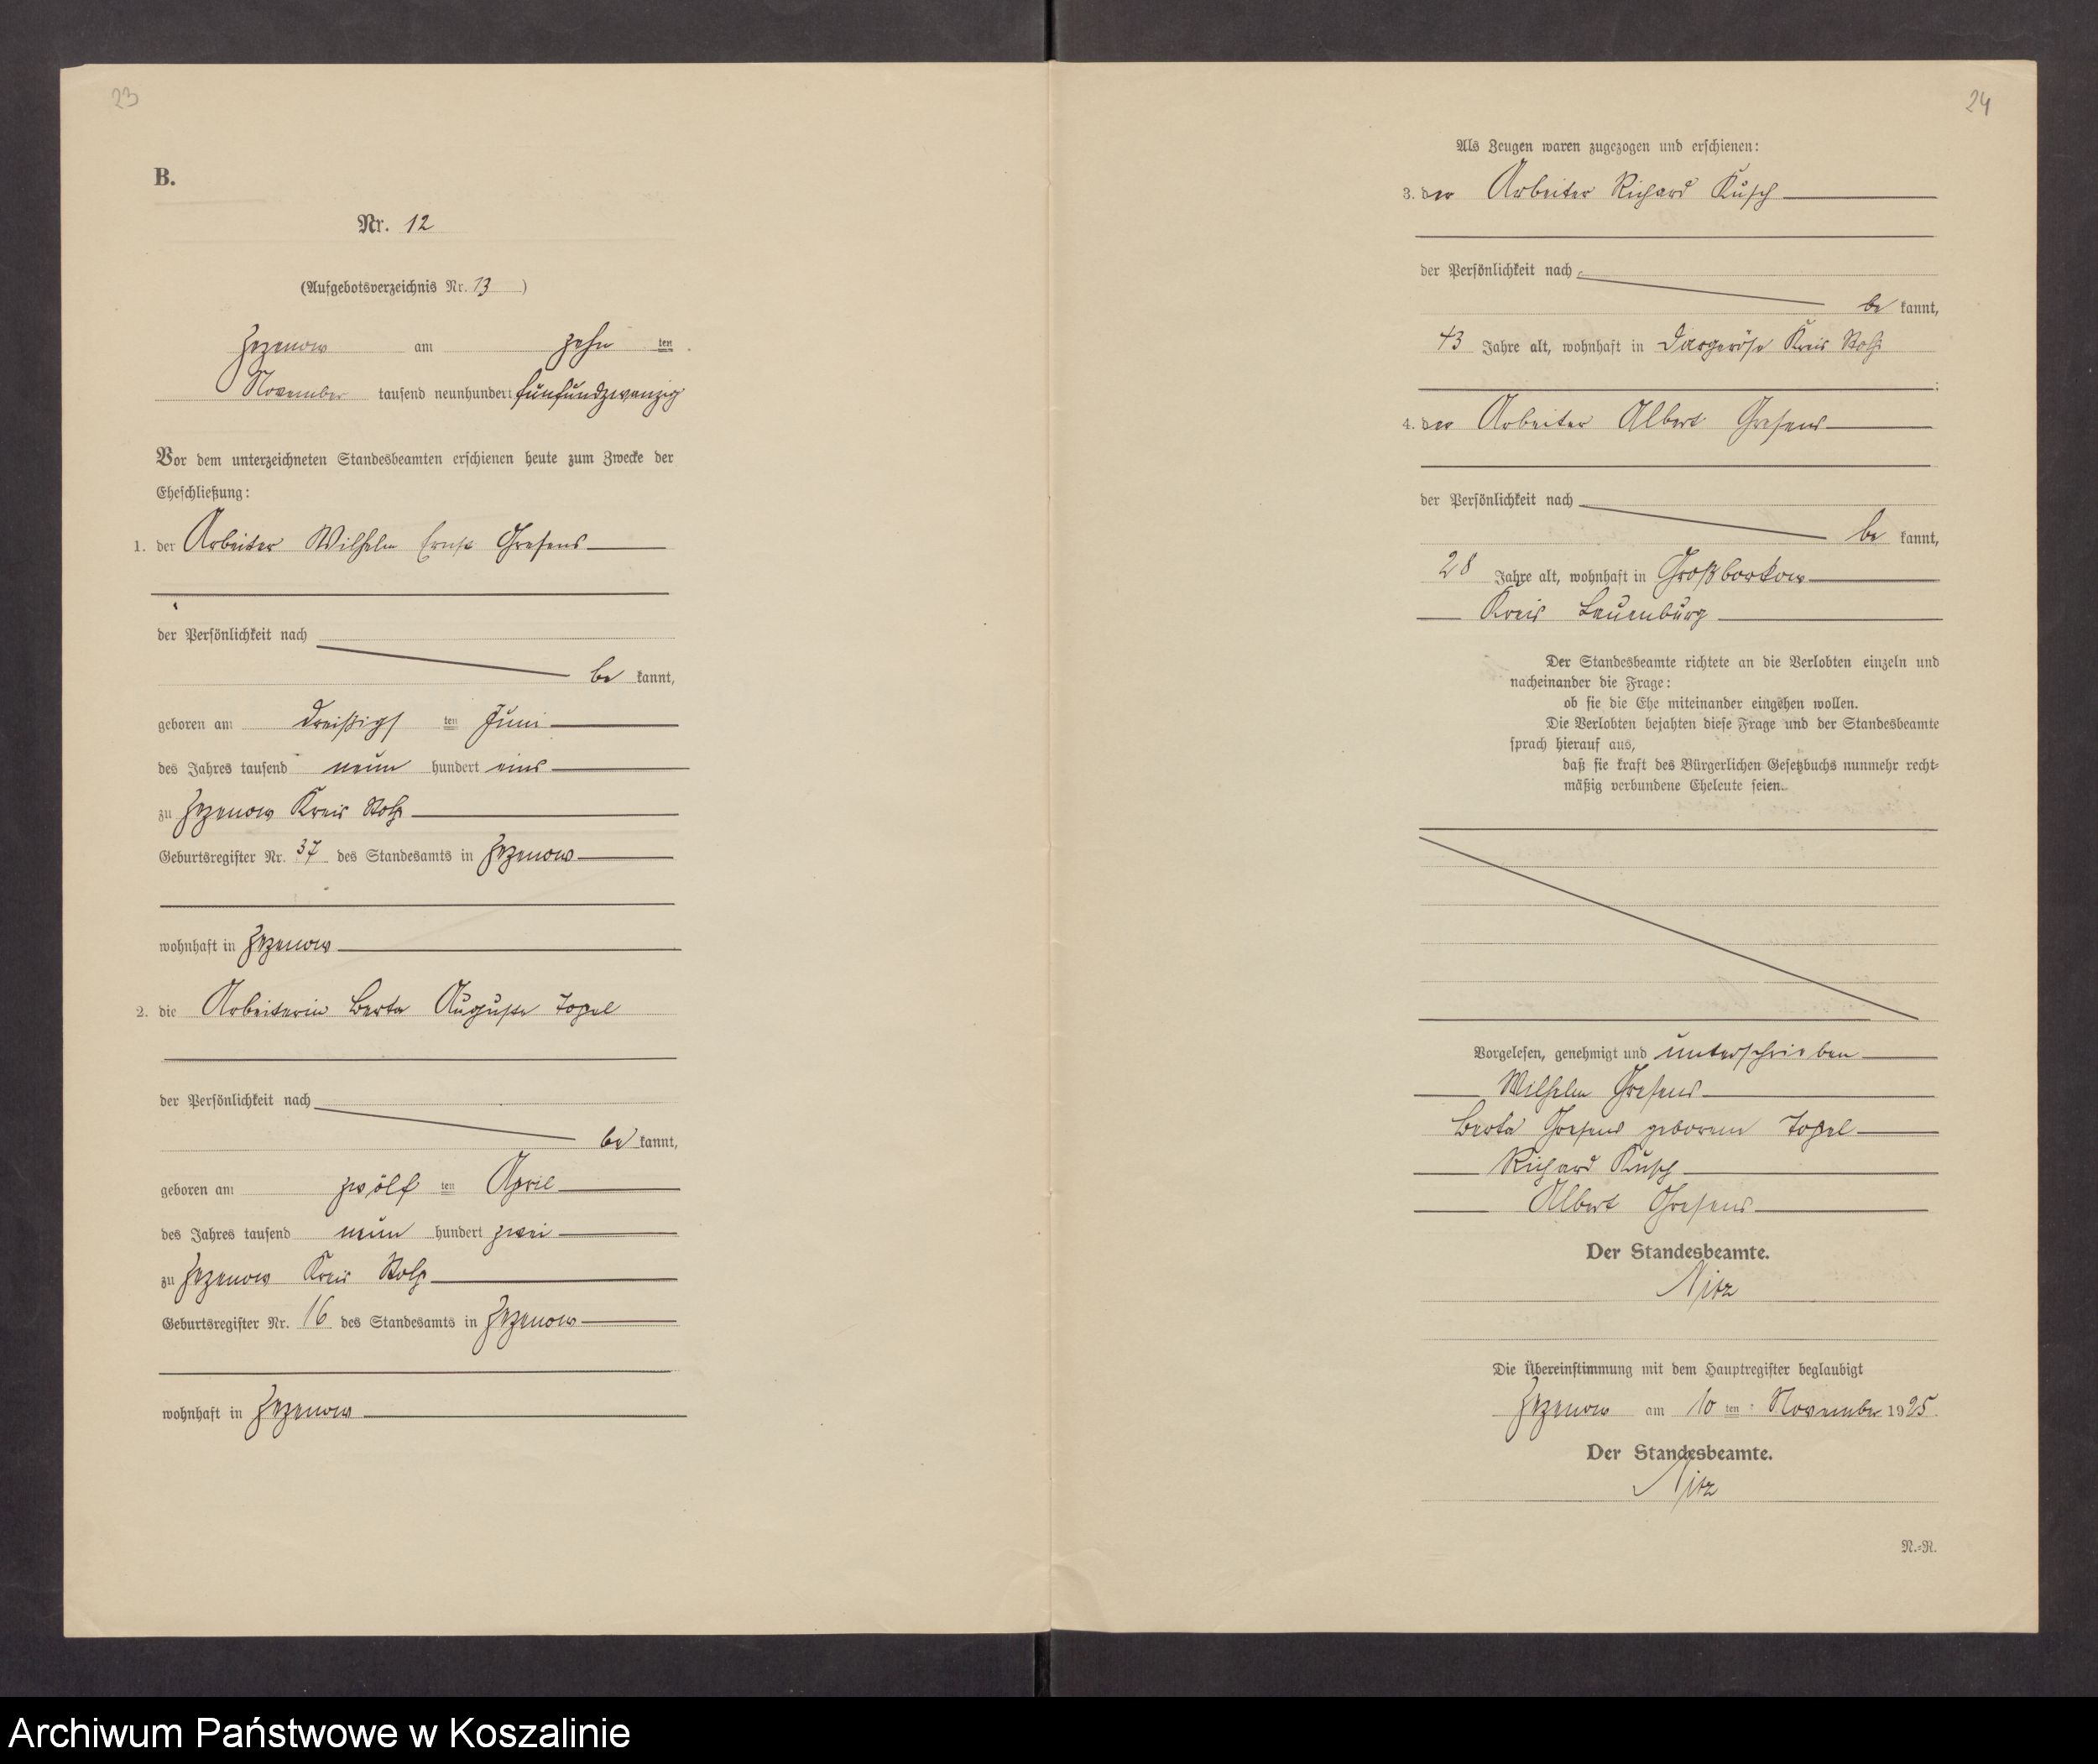 23
B.
Nr. 12
(Aufgebotsverzeichnis Nr. 13)
Zezenow am zehn ten
November tausend neunhundert fünfundzwanzig
Vor dem unterzeichneten Standesbeamten erschienen heute zum Zwecke der
Eheschließung:
1. der Arbeiter Wilhelm Ernst Gresens
der Persönlichkeit nach
be kannt,
geboren am dreißigst ten Juni
des Jahres tausend neun hundert eins
zu Zezenow Kreis Stolp
Geburtsregister Nr. 37 des Standesamts in Zezenow
wohnhaft in Zezenow
2. die Arbeiterin Berta Auguste Topel
der Persönlichkeit nach
be kannt,
geboren am zwölf ten April
des Jahres tausend neun hundert zwei
zu Zezenow Kreis Stolp
Geburtsregister Nr. 16 des Standesamts in Zezenow
wohnhaft in Zezenow
24
Als Zeugen waren zugezogen und erschienen:
3. der Arbeiter Richard Kusch
der Persönlichkeit nach
be kannt,
43 Jahre alt, wohnhaft in Dargeröse Kreis Stolp
;
4. der Arbeiter Albert Gresens
der Persönlichkeit nach
be kannt,
28 Jahre alt, wohnhaft in Großborkow
Kreis Lauenburg
Der Standesbeamte richtete an die Verlobten einzeln und
nacheinander die Frage:
ob sie die Ehe miteinander eingehen wollen.
Die Verlobten bejahten diese Frage und der Standesbeamte
sprach hierauf aus,
daß sie kraft des Bürgerlichen Gesetzbuchs nunmehr recht-
mäßig verbundene Eheleute seien.
Vorgelesen, genehmigt und unterschrieben
Wilhelm Gresens
Berta Gresens geborene Topel
Richard Kusch
Albert Gresens
Der Standesbeamte.
Nitz
Die Übereinstimmung mit dem Hauptregister beglaubigt
Zezenow am 10 ten November 1925
Der Standesbeamte.
Nitz
N.-N.
Archiwum Państwowe w Koszalinie